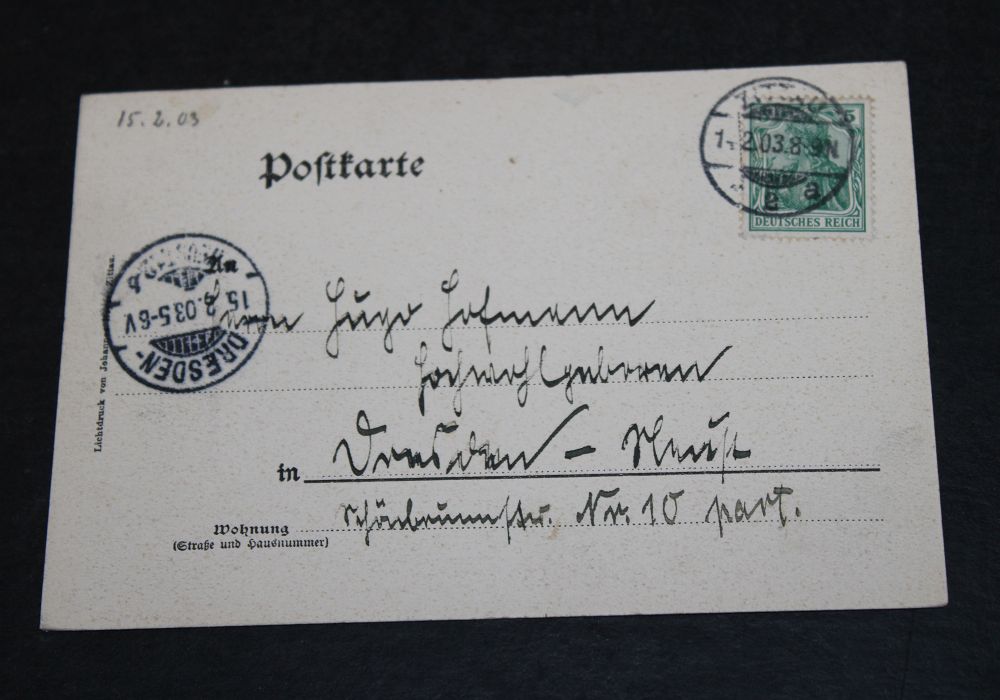 15.2.03
Postkarte
ZITTAU
1. 2.03.8-9N
a
5
DEUTSCHES REICH
DRESDEN-
15. 2. 03.5-6V
An
Herrn Hugo Hofmann
Hochwohlgeboren
in Dresden - Neust
Wohnung
(Straße und Hausnummer)
Schönbrunnstr. Nr. 10 part.
Lichtdruck von Johann Zittau.